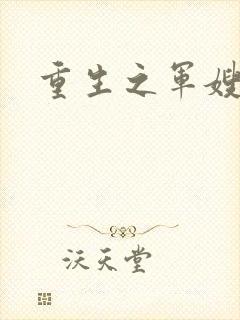 重生之军嫂
沃天堂